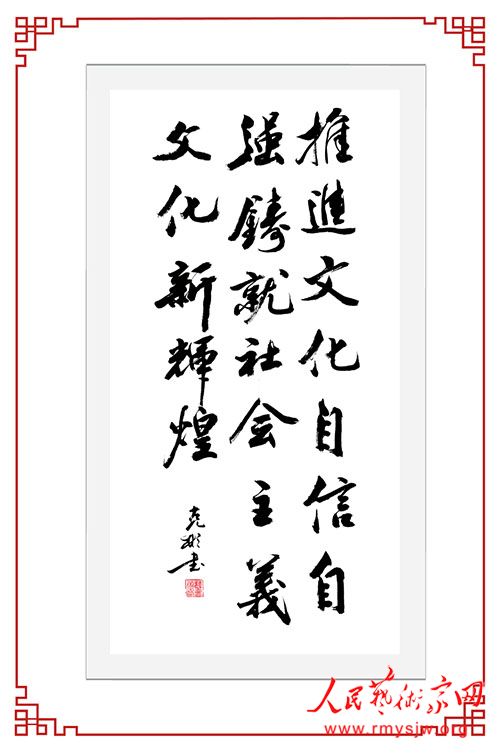 推進文化自信自
强鑄就社会主義
文化新輝煌
克彬書
人民藝術家网
www.rmysjw.org